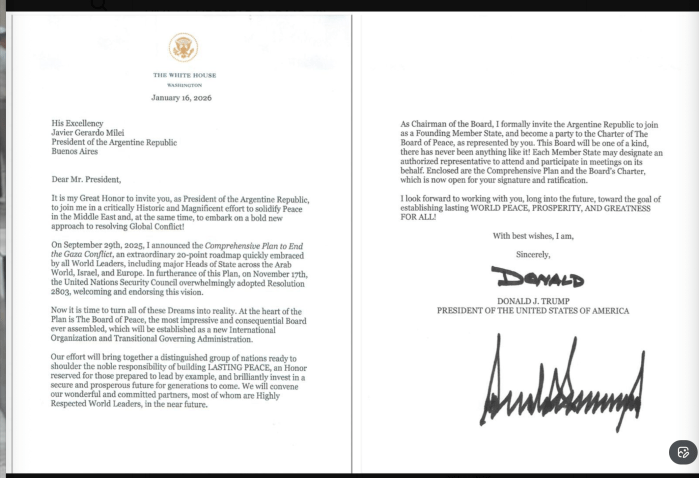 THE WHITE HOUSE
WASHINGTON
January 16, 2026
His Excellency
Javier Gerardo Milei
President of the Argentine Republic
Buenos Aires
Dear Mr. President,
It is my Great Honor to invite you, as President of the Argentine Republic,
to join me in a critically Historic and Magnificent effort to solidify Peace
in the Middle East and, at the same time, to embark on a bold new
approach to resolving Global Conflict!
On September 29th, 2025, I announced the Comprehensive Plan to End
the Gaza Conflict, an extraordinary 20-point roadmap quickly embraced
by all World Leaders, including major Heads of State across the Arab
World, Israel, and Europe. In furtherance of this Plan, on November 17th,
the United Nations Security Council overwhelmingly adopted Resolution
2803, welcoming and endorsing this vision.
Now it is time to turn all of these Dreams into reality. At the heart of the
Plan is The Board of Peace, the most impressive and consequential Board
ever assembled, which will be established as a new International
Organization and Transitional Governing Administration.
Our effort will bring together a distinguished group of nations ready to
shoulder the noble responsibility of building LASTING PEACE, an Honor
reserved for those prepared to lead by example, and brilliantly invest in a
secure and prosperous future for generations to come. We will convene
our wonderful and committed partners, most of whom are Highly
Respected World Leaders, in the near future.
As Chairman of the Board, I formally invite the Argentine Republic to join
as a Founding Member State, and become a party to the Charter of The
Board of Peace, as represented by you. This Board will be one of a kind,
there has never been anything like it! Each Member State may designate an
authorized representative to attend and participate in meetings on its
behalf. Enclosed are the Comprehensive Plan and the Board's Charter,
which is now open for your signature and ratification.
I look forward to working with you, long into the future, toward the goal of
establishing lasting WORLD PEACE, PROSPERITY, AND GREATNESS
FOR ALL!
With best wishes, I am,
Sincerely,
DONALD
DONALD J. TRUMP
PRESIDENT OF THE UNITED STATES OF AMERICA